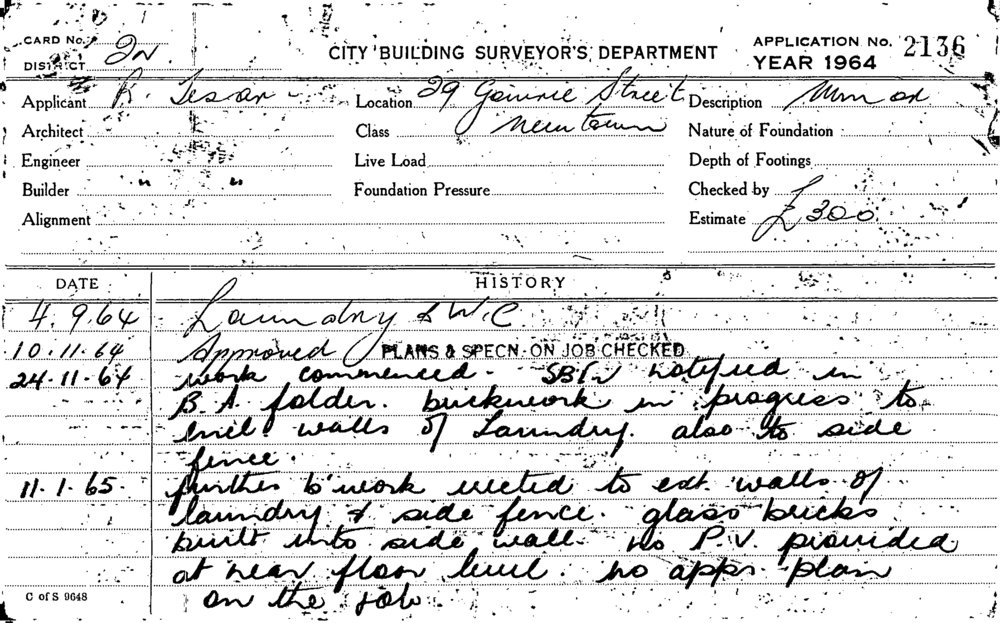 CARD No.
DISTRICT 2N.
CITY BUILDING SURVEYOR'S DEPARTMENT
APPLICATION No. 2136
YEAR 1964
Applicant R. Tesar
Location 29 Gowrie Street
Description Minor
Architect
Class Newtown
Nature of Foundation
Engineer
Live Load
Depth of Footings
Builder " "
Foundation Pressure
Checked by
Alignment
Estimate £300
DATE
HISTORY
4.9.64 Laundry & W.C
10.11.64 Approved PLANS & SPECN. ON JOB CHECKED
24.11.64 work commenced. notified in
B.A. folder. brickwork in progress to
walls of Laundry. also to side
fence.
11.1.65. further b'work erected to ext. walls of
laundry & side fence. glass bricks
built into side wall. no P.V. provided
at near floor level. no appr. plan
on the job.
C of S 9648